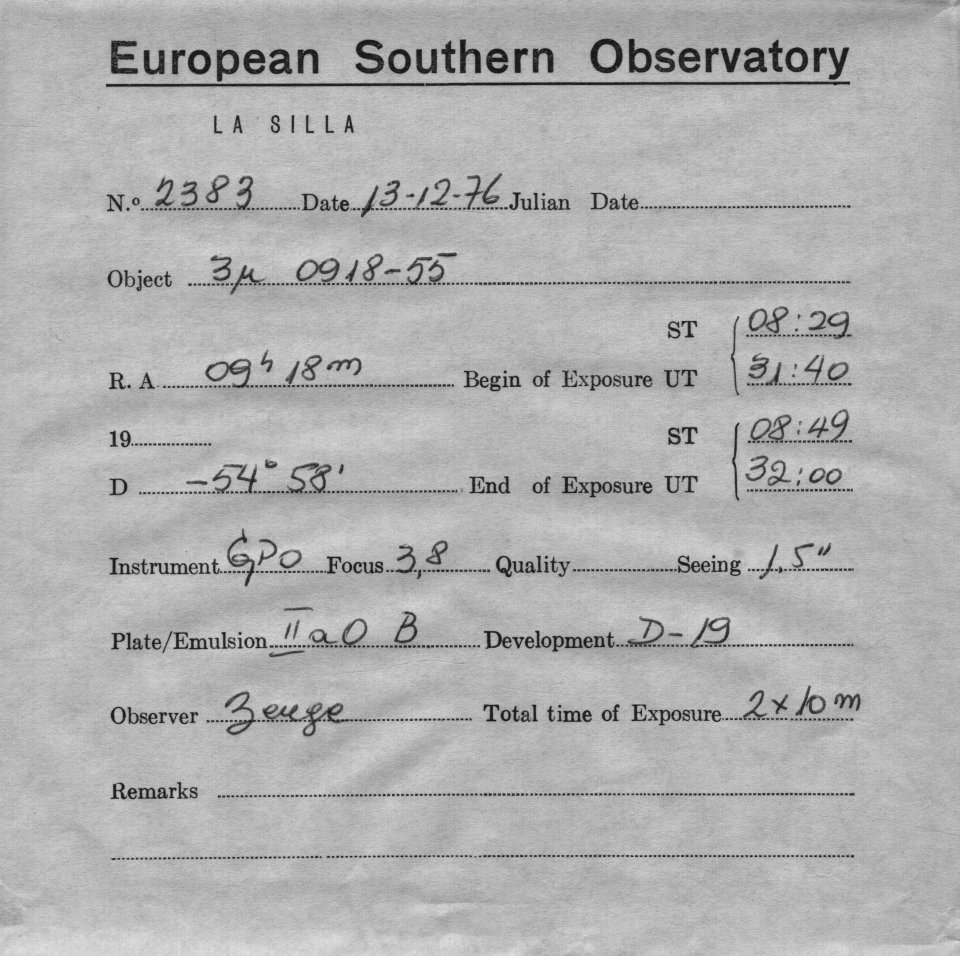 European Southern Observatory
LA SILLA
N.º 2383 Date 13-12-76 Julian Date
Object 3μ 0918-55
ST 08:29
R. A 09h 18m Begin of Exposure UT 31:40
19 ST 08:49
D -54° 58' End of Exposure UT 32:00
Instrument GPO Focus 3,8 Quality Seeing 1,5"
Plate/Emulsion IIaO B Development D-19
Observer Zeuge Total time of Exposure 2x10m
Remarks